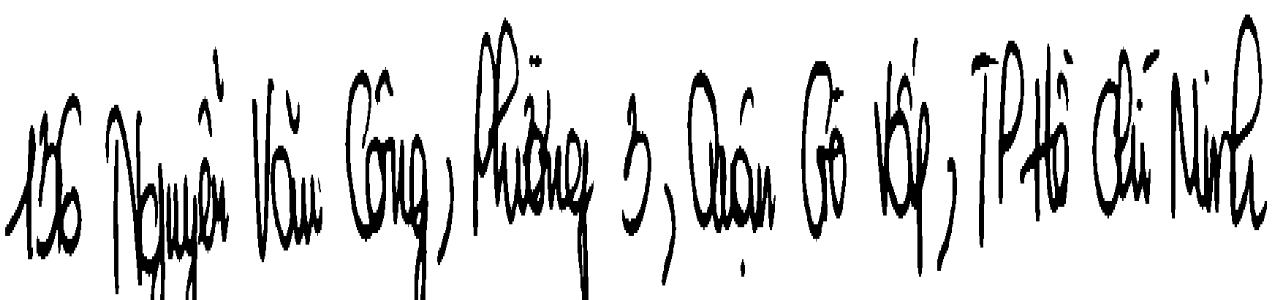 136 Nguyễn Văn Công, Phường 3, Quận Gò Vấp, TP Hồ Chí Minh